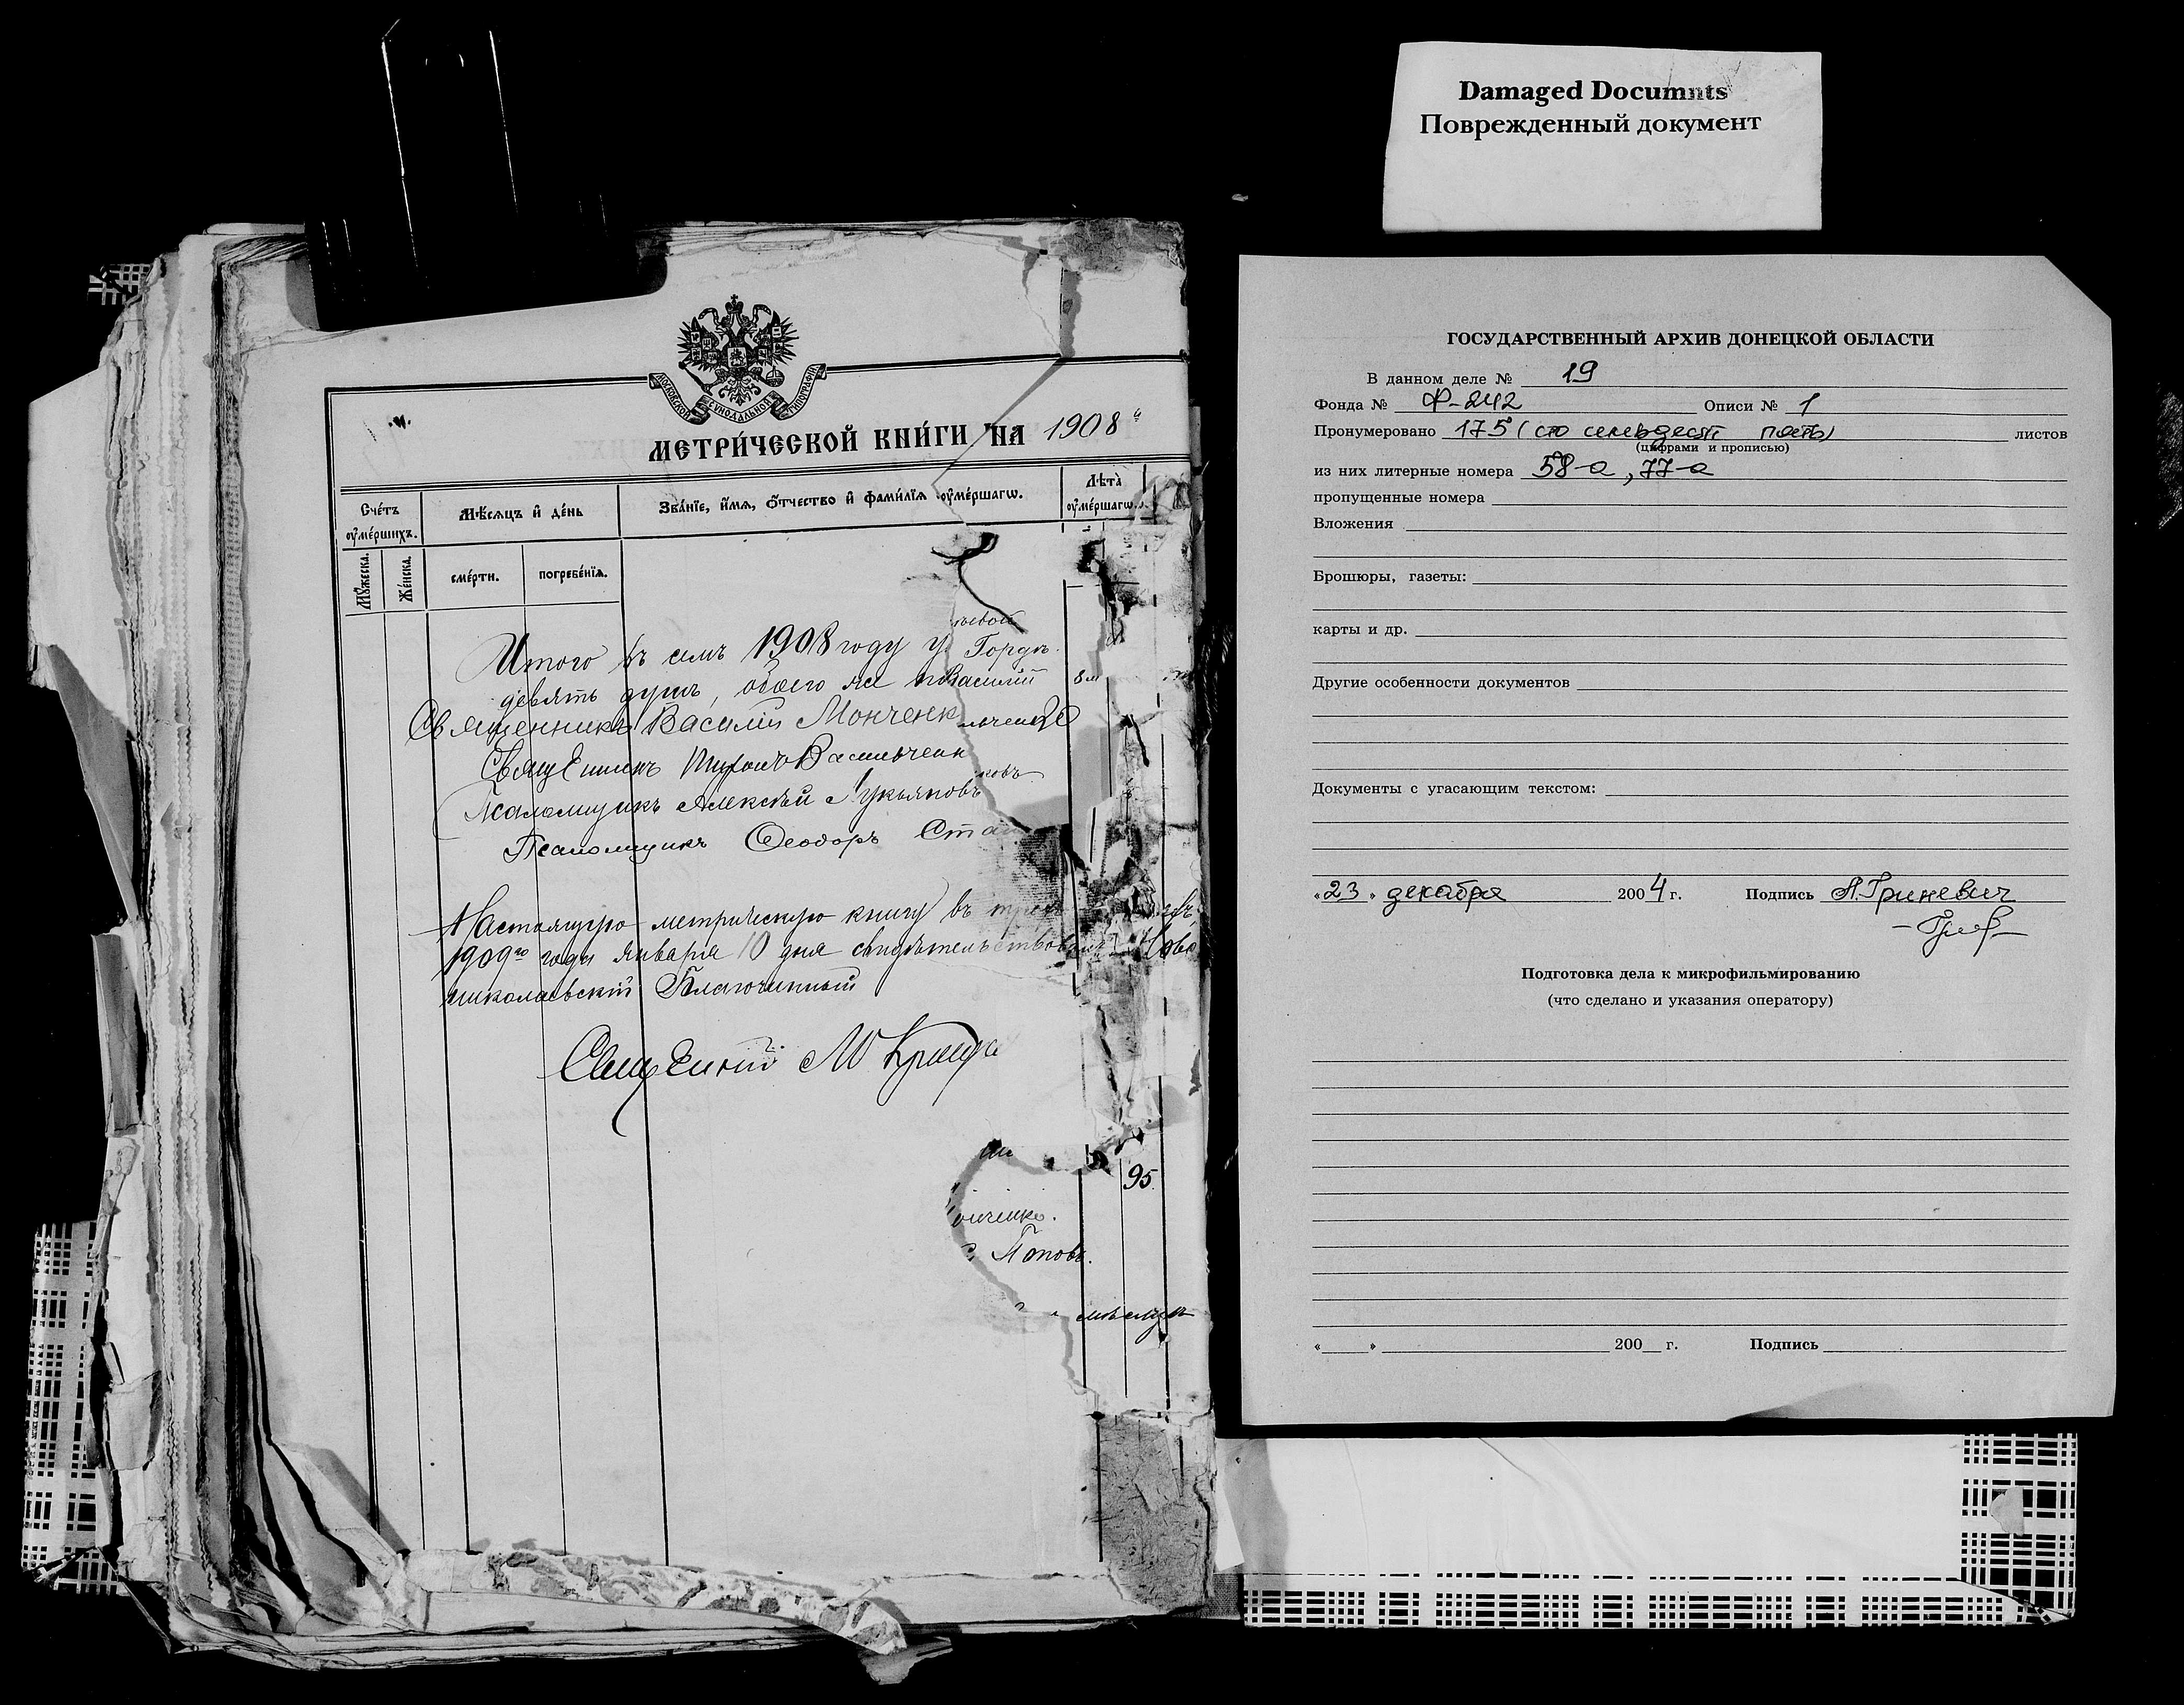 Damaged Documnts
Поврежденный документ
МОСКОВСКОЙ СѴНОДАЛЬНОЙ ТИПОГРАФІИ
МЕТРИ́ЧЕСКОЙ КНИ́ГИ НА 1908
Сче́тъ оу҆ме́ршихъ.
Мѣ́сяцъ и҆ де́нь
Зва́нїе, и҆́мѧ, ѻ҆́тчество и҆ фами́лїѧ оу҆ме́ршагѡ.
Лѣ́та оу҆ме́ршагѡ.
Мꙋ́жеска.
Же́нска.
сме́рти.
погребе́нїѧ.
Итого въ семъ 1908 году у
девять душъ, обоего
Василій
Священникъ Василій Монченк
Священникъ Василь
Псаломщикъ Алексѣй Лукьяновъ
Псаломщикъ Ѳеодоръ
Настоящую метрическую книгу въ
1909го года января 10 дня свидѣтельствовалъ Ново
николаевскій Благочинный
95
Поповъ.
ГОСУДАРСТВЕННЫЙ АРХИВ ДОНЕЦКОЙ ОБЛАСТИ
В данном деле № 19
Фонда № Ф-242 Описи № 1
Пронумеровано 175 (сто семьдесят пять) листов
(цифрами и прописью)
из них литерные номера 58-а, 77-а
пропущенные номера
Вложения
Брошюры, газеты:
карты и др.
Другие особенности документов
Документы с угасающим текстом:
«23» декабря 2004 г. Подпись Л.Гриневич
Подготовка дела к микрофильмированию
(что сделано и указания оператору)
« » 200 г. Подпись